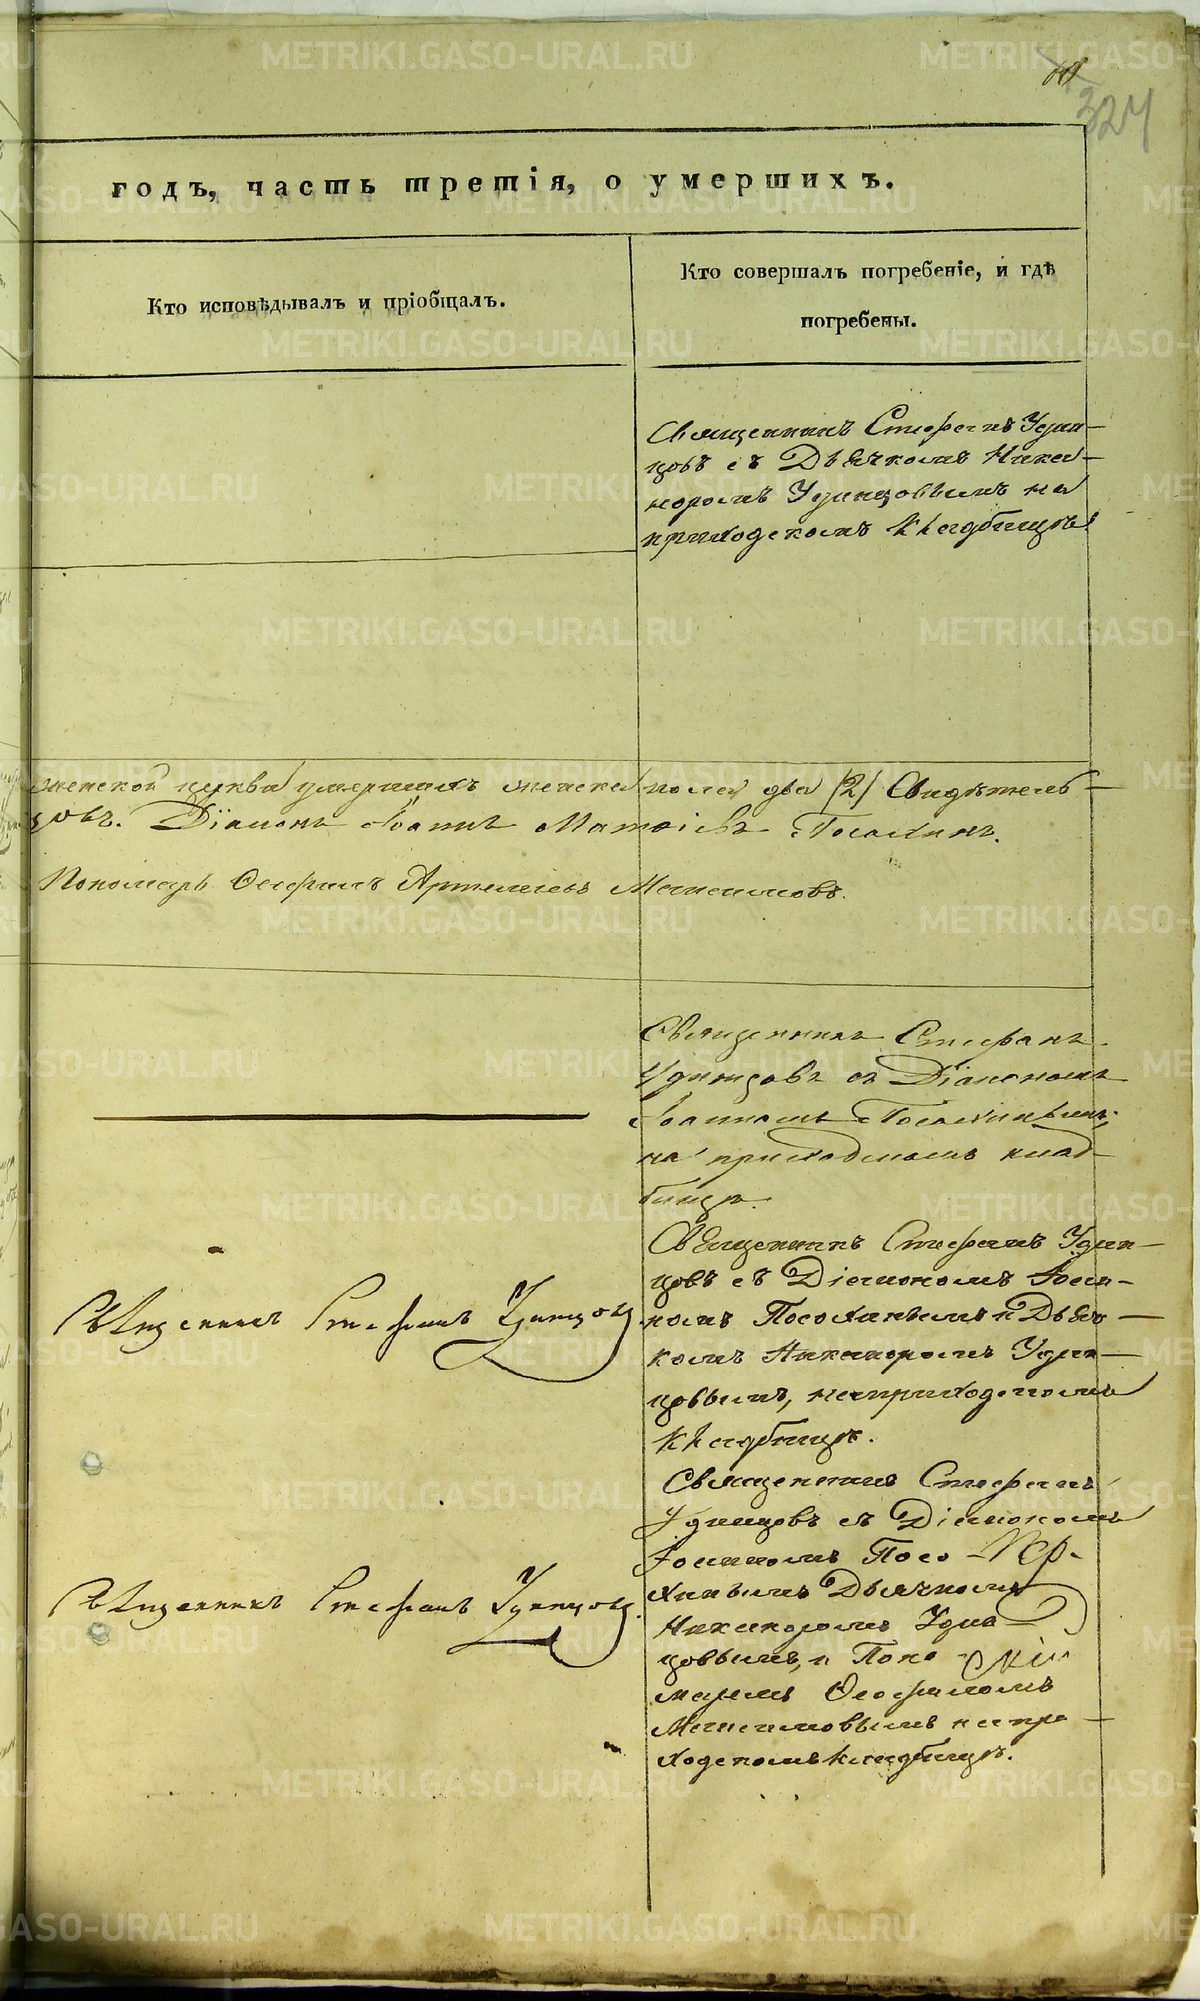 324
годъ, часть третія, о умершихъ.
Кто исповѣдывалъ и пріобщалъ.
Кто совершалъ погребеніе, и гдѣ
погребены.
Священникъ Стефанъ Удин-
цовъ съ Дьячкомъ Никa-
норомъ Удинцовымъ на
приходскомъ кладбищѣ
женской церкви умершихъ женска пола два /2/ Свидѣтель-
Діаконъ Іоаннъ Матѳіевъ Посохинъ.
Пономарь Ѳеофилъ Артемьевъ
Священникъ Стефанъ
Удинцовъ съ Діакономъ
Іоанномъ Посохинымъ
на приходскомъ клад-
бищѣ.
Священникъ Стефанъ Удин-
цовъ съ Діакономъ Іоан-
номъ Посохинымъ и Дьяч-
комъ Никаноромъ Удин-
цовымъ, на приходскомъ
кладбищѣ.
Священникъ Стефанъ Удинцовъ
Священникъ Стефанъ
Удинцовъ съ Діакономъ
Іоанномъ Посо-
хинымъ Дьячкомъ
Никаноромъ Удин-
цовымъ, и Поно-
маремъ Ѳеофиломъ
на при-
ходскомъ кладбищѣ.
Священникъ Стефанъ Удинцовъ
METRIKI.GASO-URAL.RU